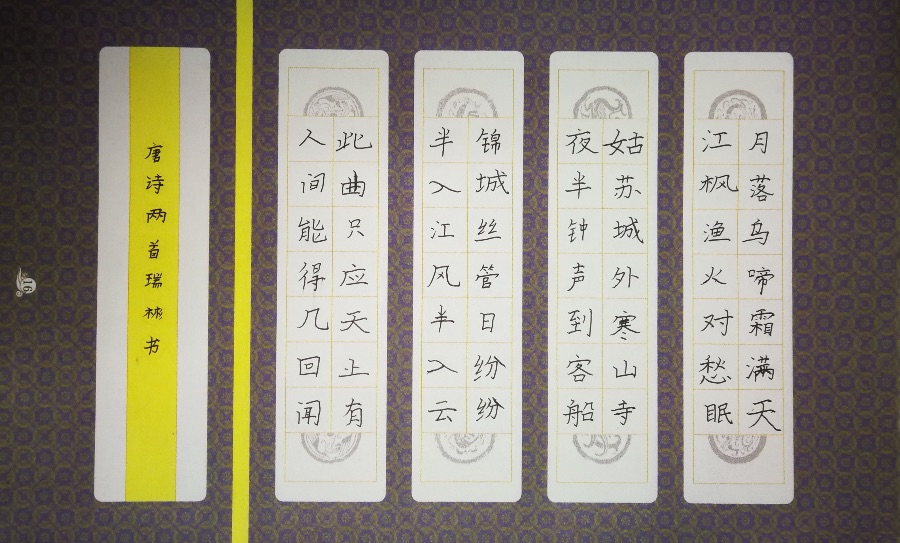 月落乌啼霜满天
江枫渔火对愁眠
姑苏城外寒山寺
夜半钟声到客船
锦城丝管日纷纷
半入江风半入云
此曲只应天上有
人间能得几回闻
唐诗两首瑞彬书
16